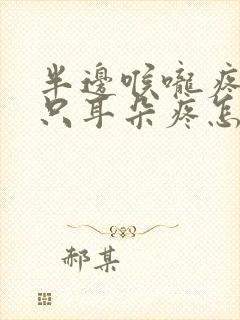 半邊喉嚨疼
只耳朵疼怎
郝某